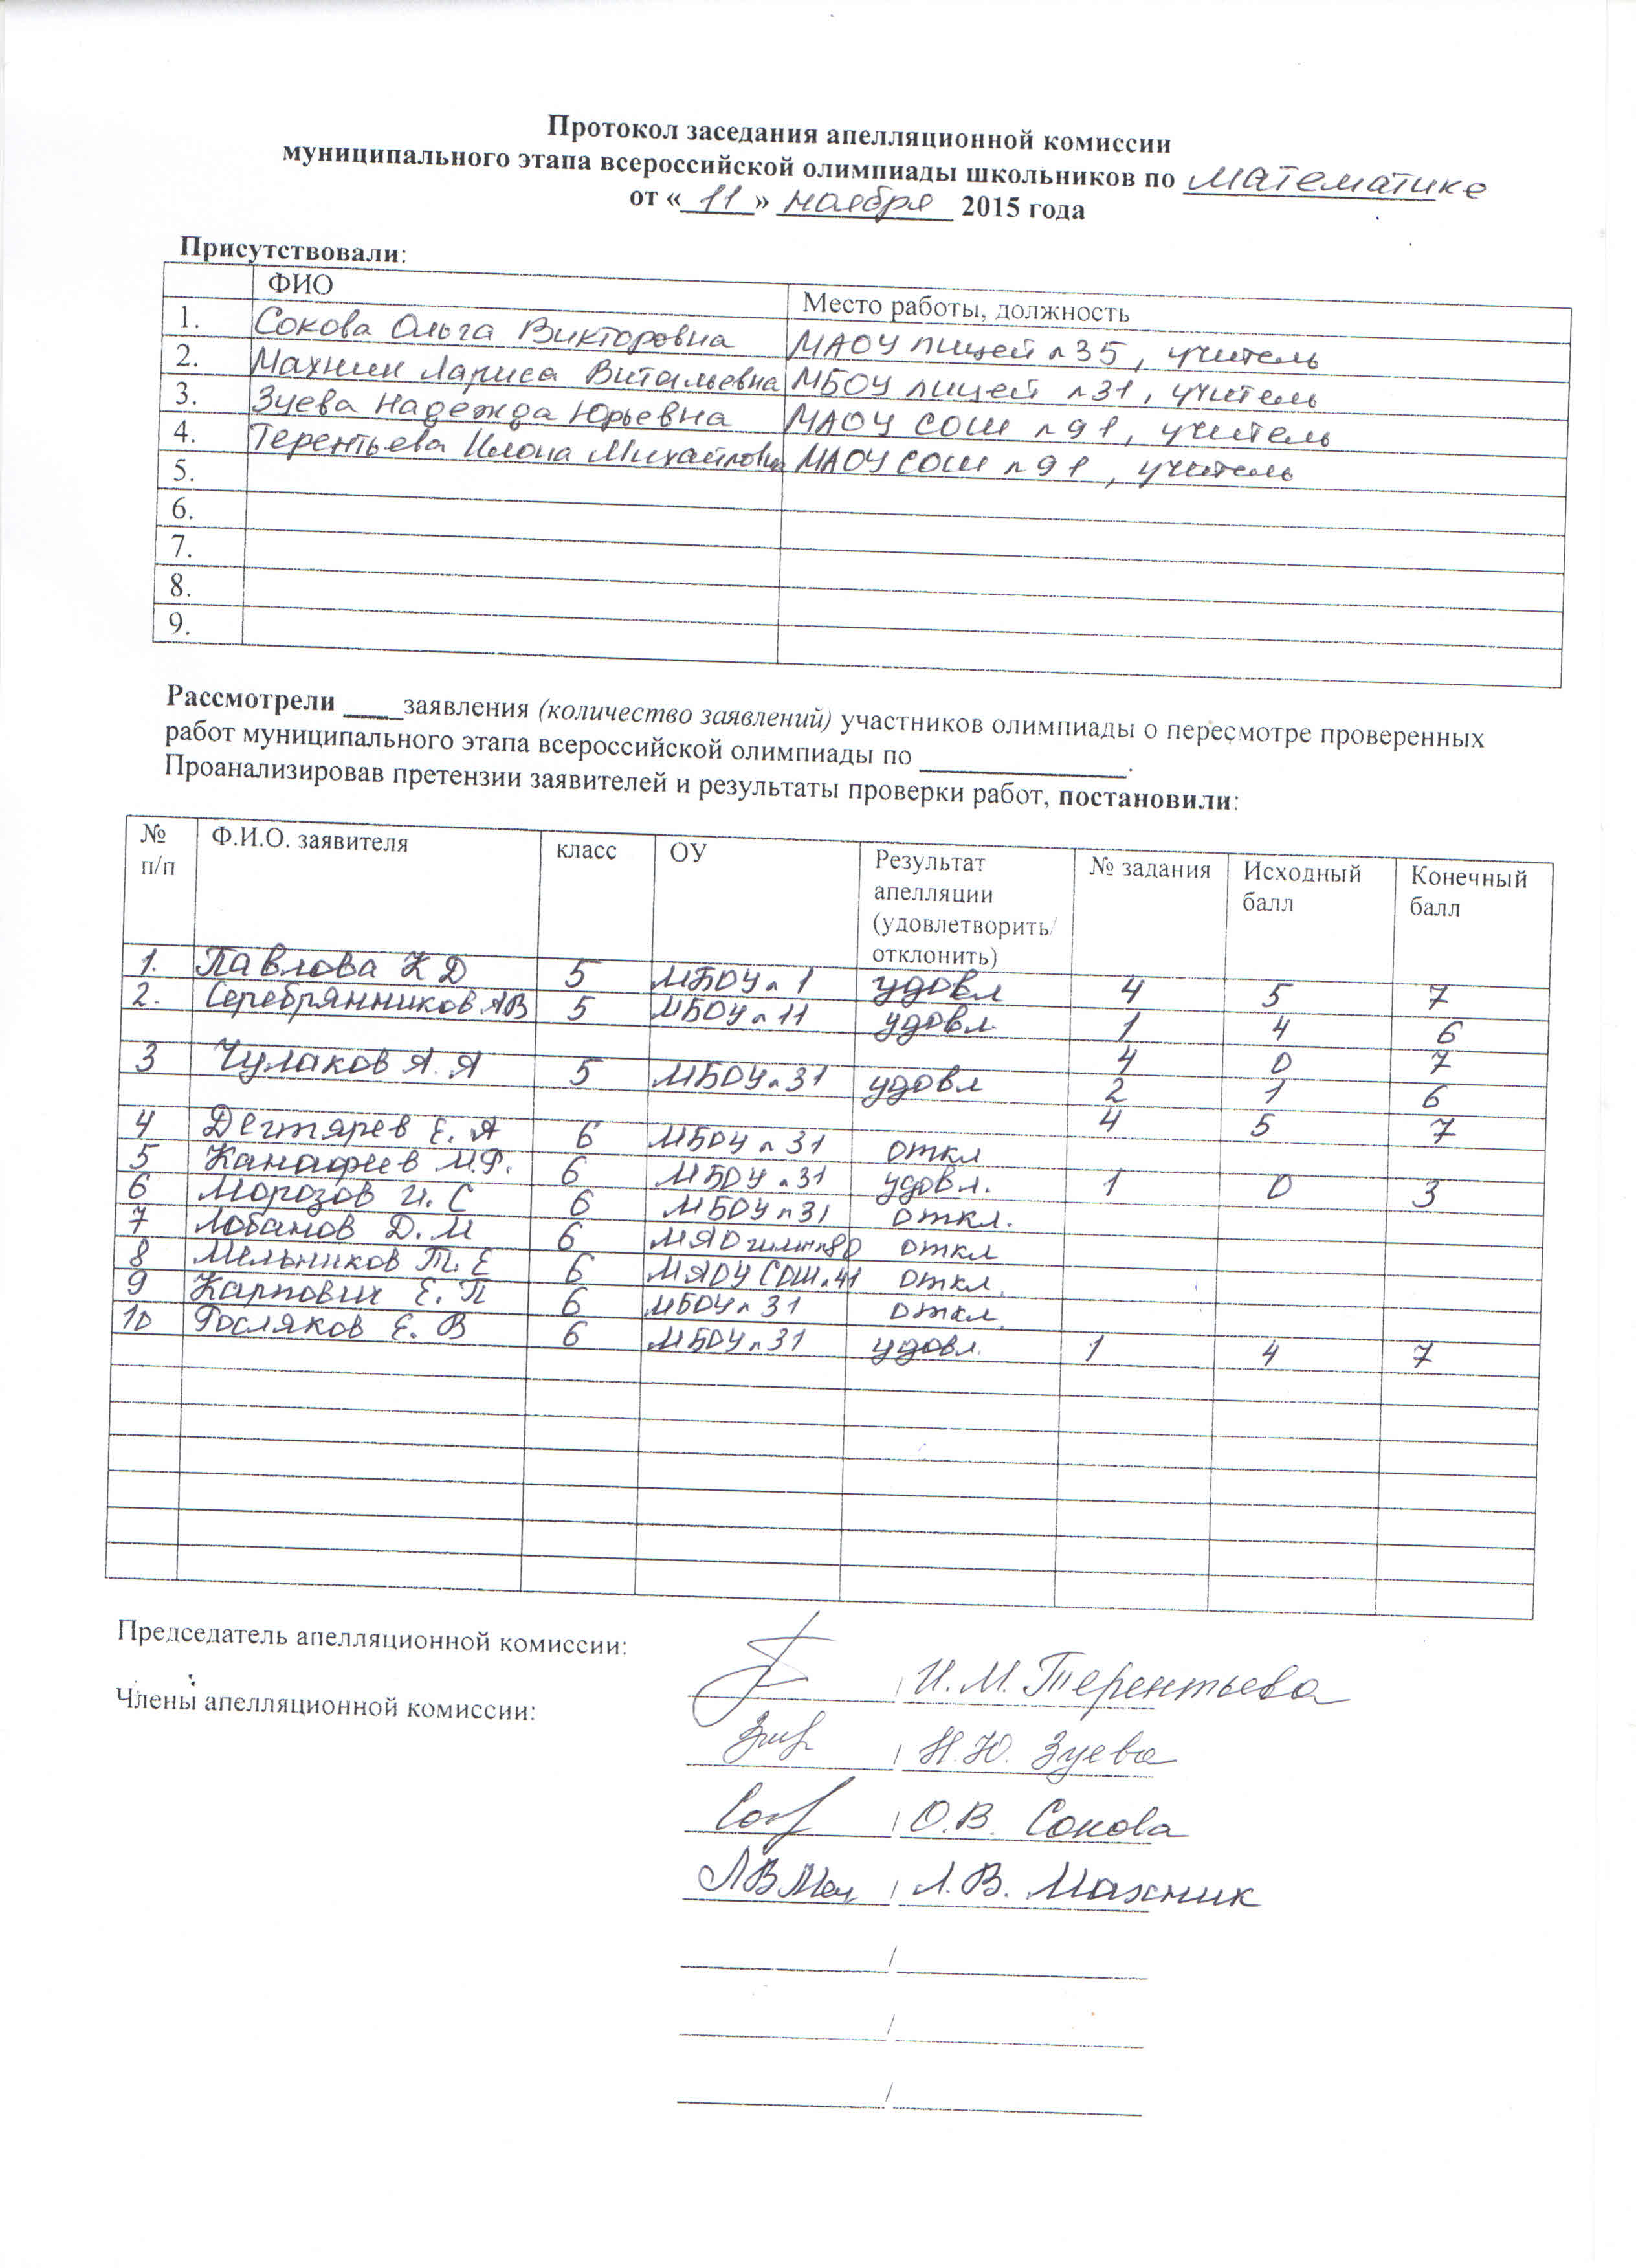 Протокол заседания апелляционной комиссии
муниципального этапа всероссийской олимпиады школьников по математике
от «11» ноября 2015 года
Присутствовали:
ФИО Место работы, должность
1. Сокова Ольга Викторовна МАОУ лицей №35, учитель
2. Махник Лариса Витальевна МБОУ лицей №31, учитель
3. Зуева Надежда Юрьевна МАОУ СОШ №91, учитель
4. Терентьева Илона Михайловна МАОУ СОШ №91, учитель
5.
6.
7.
8.
9.
Рассмотрели ____заявления (количество заявлений) участников олимпиады о пересмотре проверенных
работ муниципального этапа всероссийской олимпиады по _______________.
Проанализировав претензии заявителей и результаты проверки работ, постановили:
№ п/п Ф.И.О. заявителя класс ОУ Результат апелляции (удовлетворить/ отклонить) № задания Исходный балл Конечный балл
1. Павлова К Д 5 МБОУ №1 удовл 4 5 7
2. Серебрянников АВ 5 МБОУ №11 удовл. 1 4 6
4 0 7
3 Чулаков А. Я 5 МБОУ №31 удовл 2 1 6
4 5 7
4 Дегтярев Е. А 6 МБОУ №31 откл
5 Канафеев М.Г. 6 МБОУ №31 удовл. 1 0 3
6 Морозов И. С 6 МБОУ №31 откл.
7 Лобанов Д. М 6 МАО гимн №80 откл
8 Мельников Т. Е 6 МАОУ СОШ №41 откл.
9 Карпович Е. П 6 МБОУ №31 откл.
10 Росляков Е. В 6 МБОУ №31 удовл. 1 4 7
Председатель апелляционной комиссии:
/ И. М. Терентьева
Члены апелляционной комиссии:
/ Н. Ю. Зуева
/ О. В. Сокова
ЛВ Мах / Л. В. Махник
/
/
/